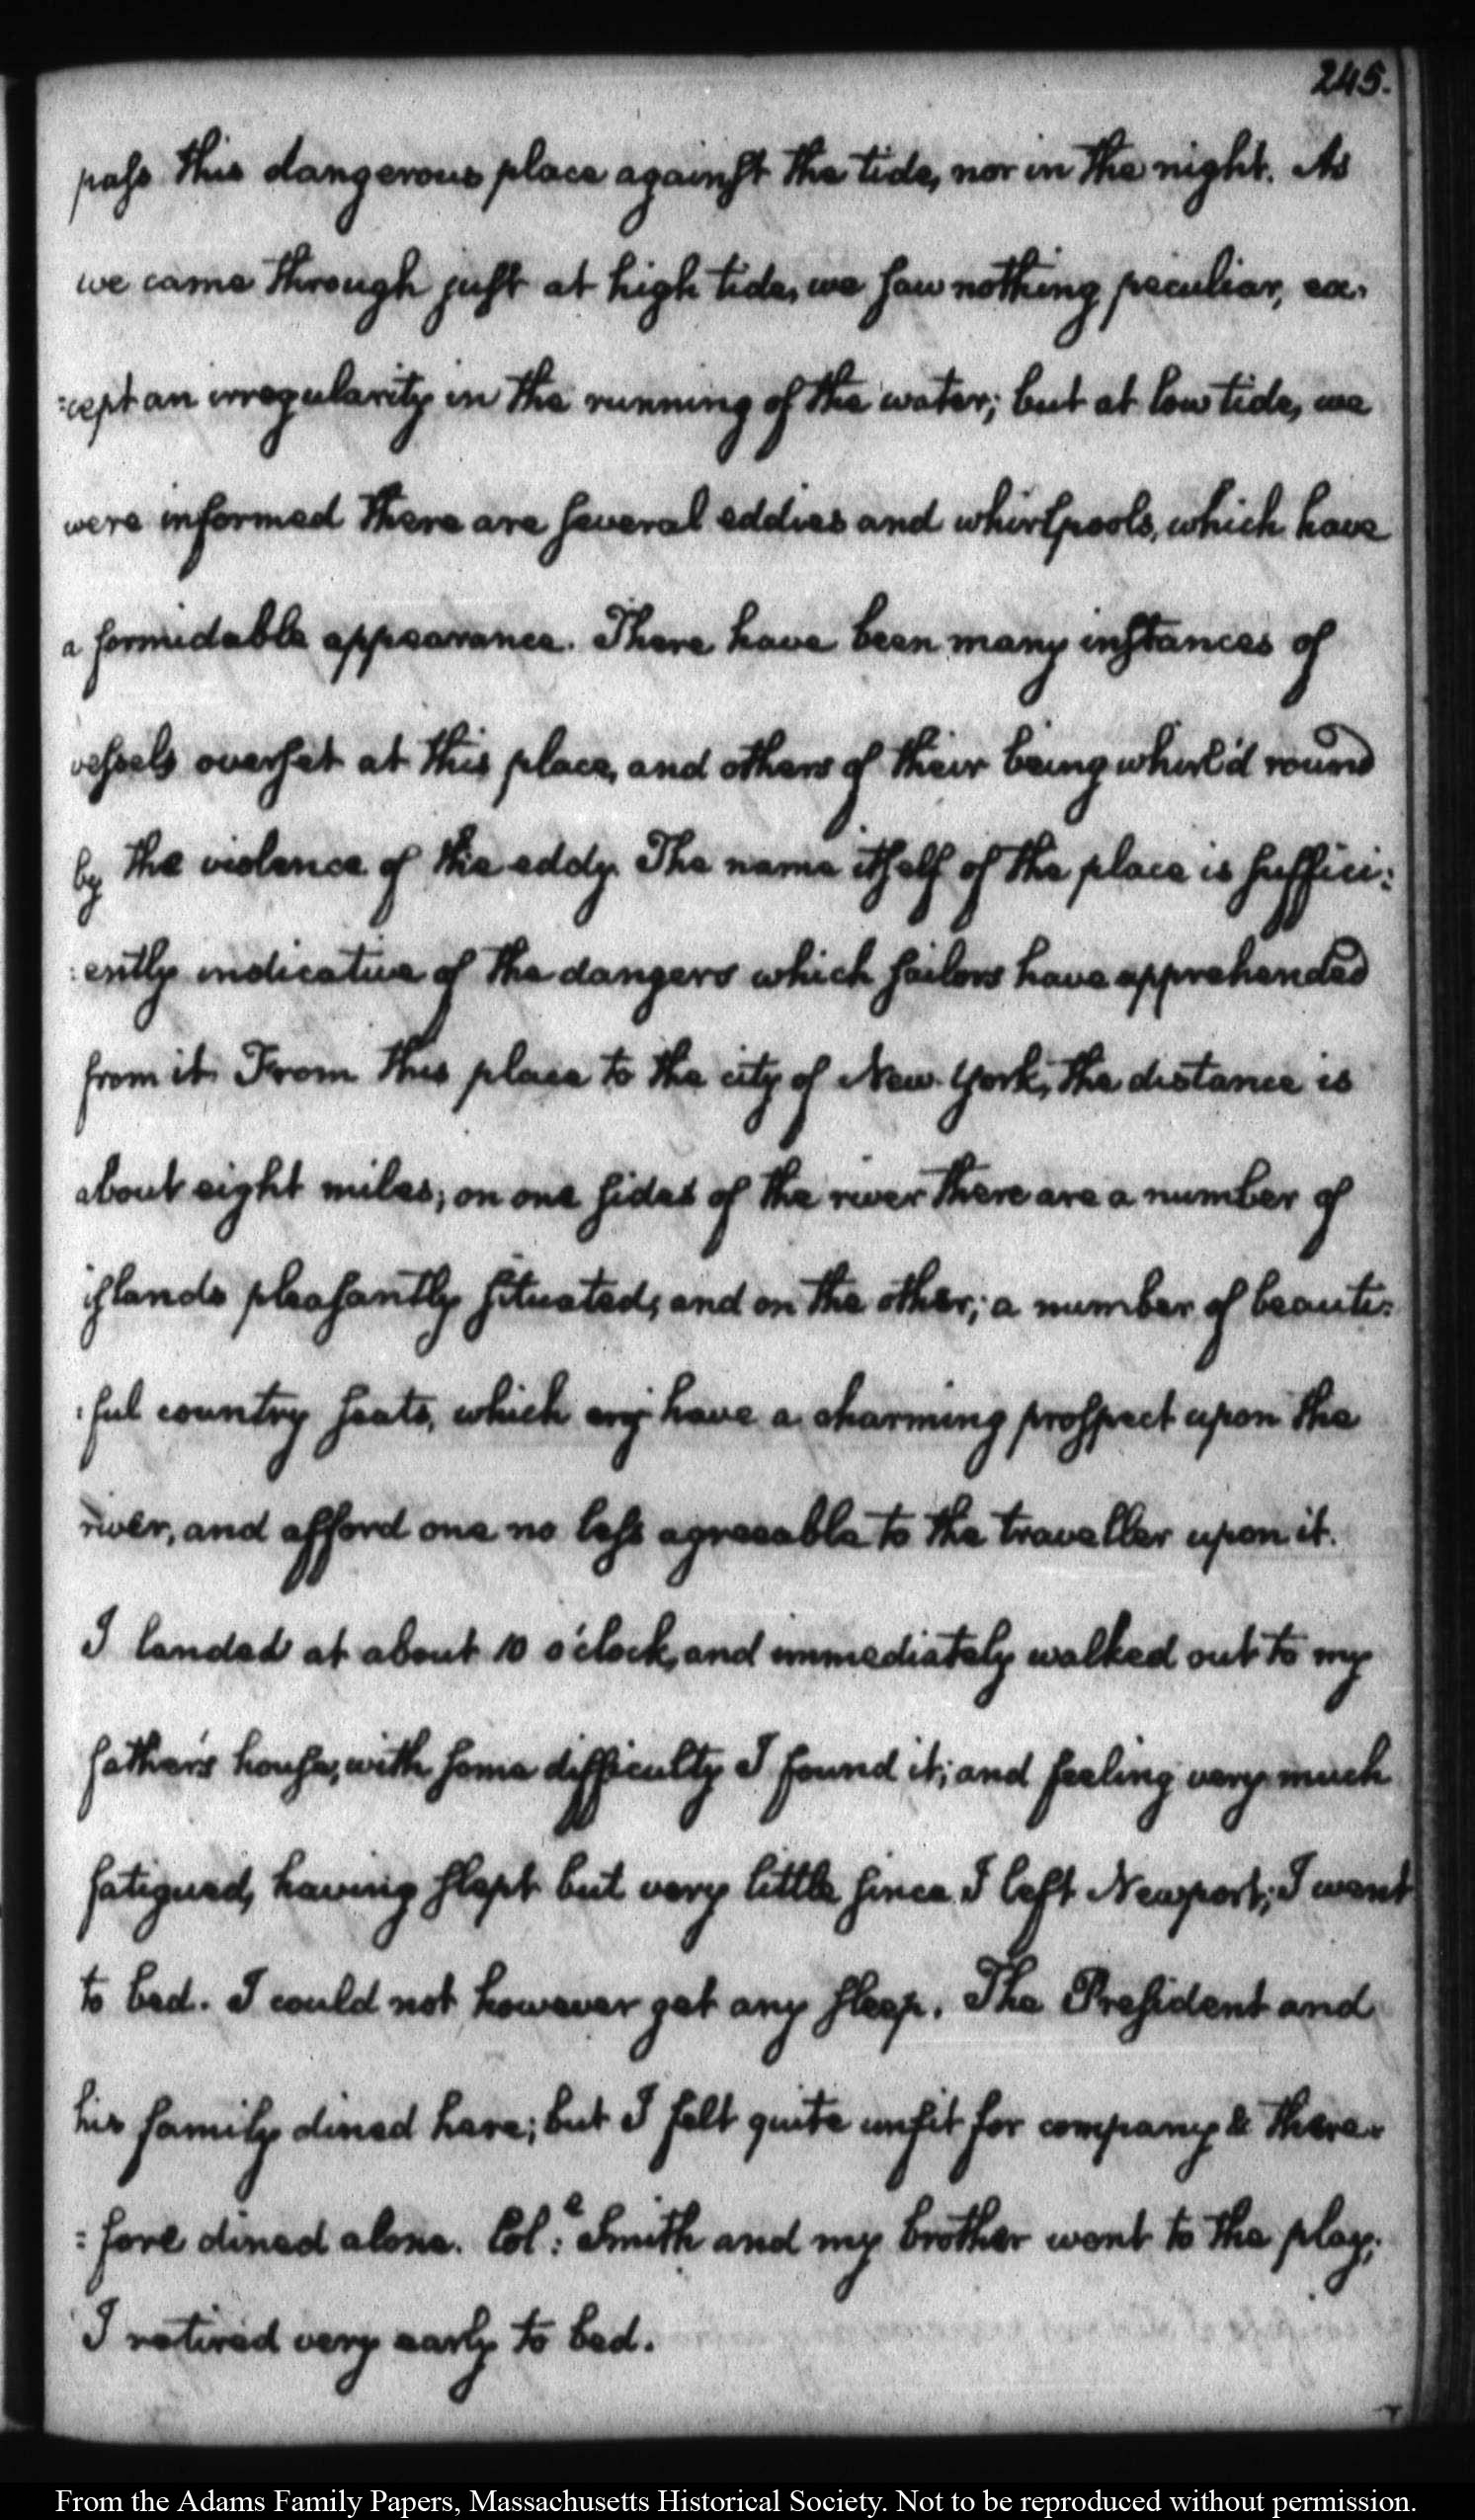 245.
pass this dangerous place against the tide, nor in the night. As
we came through just at high tide, we saw nothing peculiar, ex-
:cept an irregularity in the running of the water; but at low tide, we
were informed there are several eddies and whirlpools, which have
a formidable appearance. There have been many instances of
vessels overset at this place, and others of their being whirl'd round
by the violence of the eddy. The name itself of the place is suffici:
:ently indicative of the dangers which sailors have apprehended
from it. From this place to the city of New York, the distance is
about eight miles; on one sides of the river there are a number of
islands pleasantly situated; and on the other; a number of beauti:
:ful country seats, which have a charming prospect upon the
river, and afford one no less agreeable to the traveller upon it.
I landed at about 10 o'clock, and immediately walked out to my
father's house, with some difficulty I found it; and feeling very much
fatigued, having slept but very little since I left Newport; I went
to bed. I could not however get any sleep. The President and
his family dined here; but I felt quite unfit for company & there-
:fore dined alone. Col:l Smith and my brother went to the play;
I retired very early to bed.
From the Adams Family Papers, Massachusetts Historical Society. Not to be reproduced without permission.